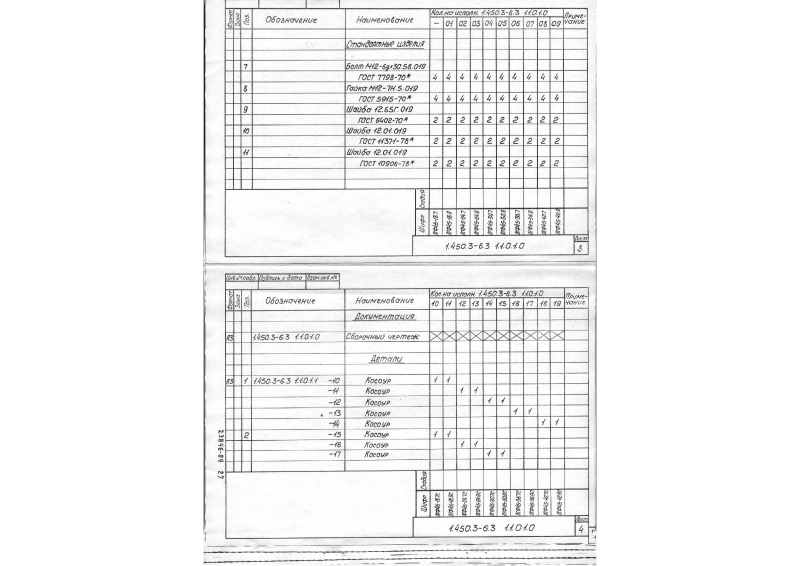 Формат Зона Поз. Обозначение Наименование Кол. на исполн. 1.450.3-6.3 1.1.0.1.0 Приме-чание
— 01 02 03 04 05 06 07 08 09
Стандартные изделия
7 Болт М12-6g×30.58.019
ГОСТ 7798-70* 4 4 4 4 4 4 4 4 4 4
8 Гайка М12-7Н.5.019
ГОСТ 5915-70* 4 4 4 4 4 4 4 4 4 4
9 Шайба 12.65Г.019
ГОСТ 6402-70* 2 2 2 2 2 2 2 2 2 2
10 Шайба 12.01.019
ГОСТ 11371-78* 2 2 2 2 2 2 2 2 2 2
11 Шайба 12.01.019
ГОСТ 10906-78* 2 2 2 2 2 2 2 2 2 2
Стадия
Шифр
1.450.3-6.3 1.1.0.1.0
Лист
3
Инв.№ подл. Подпись и дата Взам.инв.№
Формат Зона Поз. Обозначение Наименование Кол. на исполн. 1.450.3-6.3 1.1.0.1.0 Приме-чание
10 11 12 13 14 15 16 17 18 19
Документация
А3 1.450.3-6.3 1.1.0.1.0 Сборочный чертеж
Детали
А3 1 1.450.3-6.3 1.1.0.1.1 -10 Косоур 1 1
-11 Косоур 1 1
-12 Косоур 1 1
-13 Косоур 1 1
-14 Косоур 1 1
2 -15 Косоур 1 1
-16 Косоур 1 1
-17 Косоур 1 1
23846-04 27
Стадия
Шифр
1.450.3-6.3 1.1.0.1.0
Лист
4